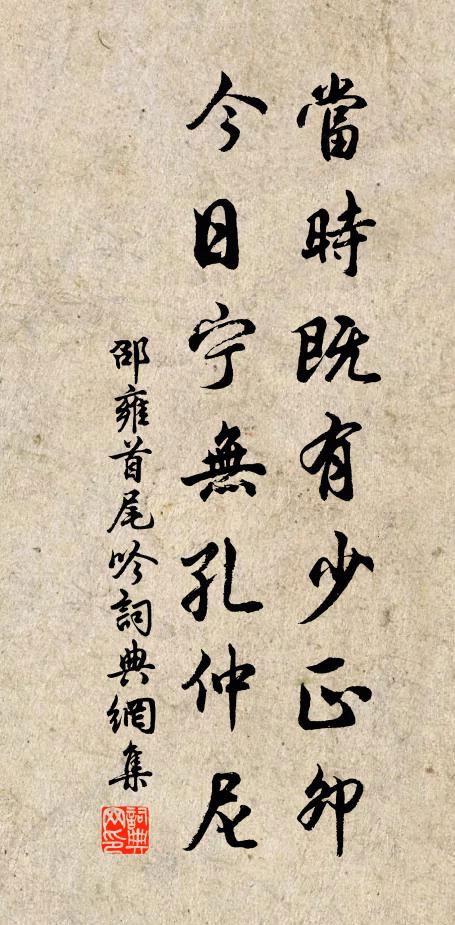 當時既有少正卯
今日宁無孔仲尼
邵雍首尾吟詞典網集
詞典网印